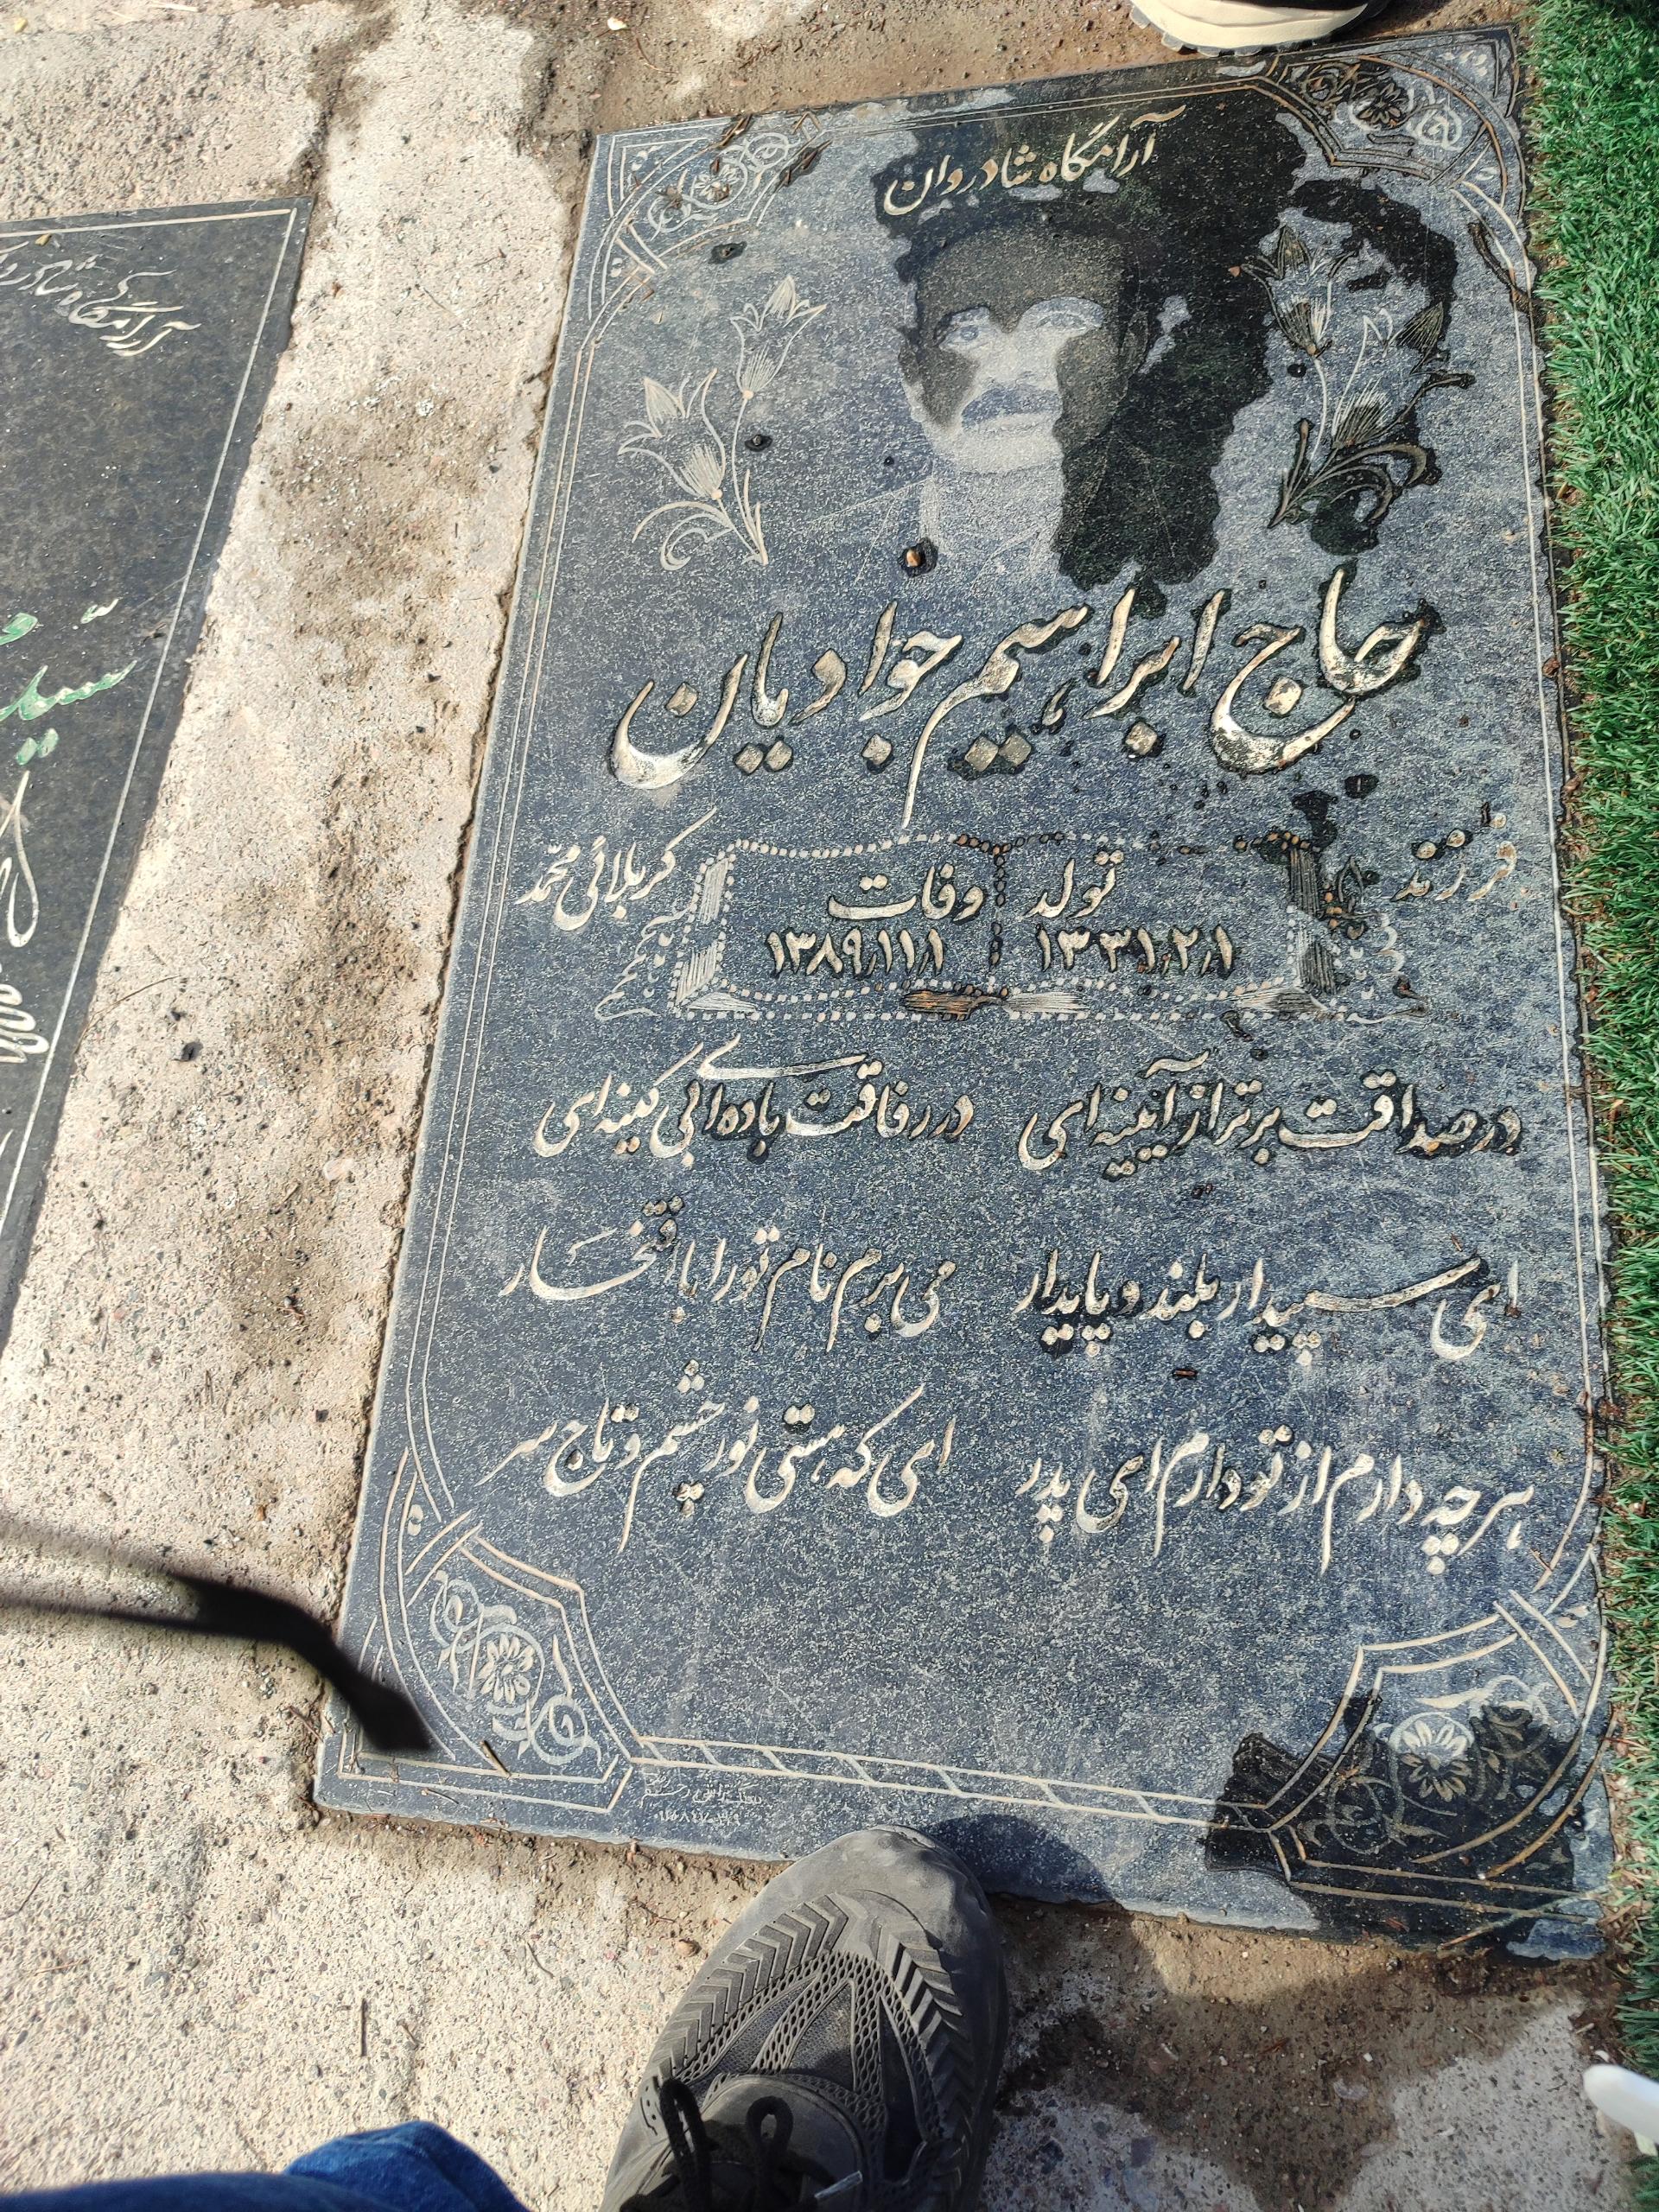 آرامگاه شادروان
حاج ابراهیم جوادیان
فرزند کربلائی محمد
تولد وفات
۱۳۳۱٫۲٫۱ ۱۳۸۹٫۱۱٫۱
در صداقت برتر از آیینه ای در رفاقت باده ای بی کینه ای
ای سپیدار بلند و پایدار می برم نام تو را با افتخار
هر چه دارم از تو دارم ای پدر ای که هستی نور چشم و تاج سر
آرامگاه شادروان
سید